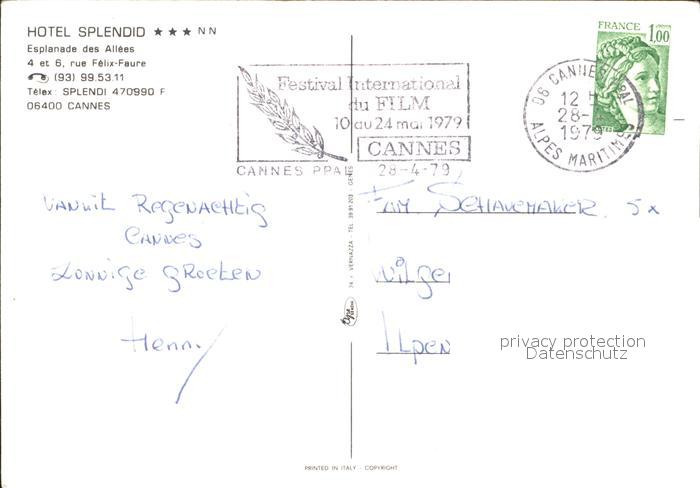 HOTEL SPLENDID ★★★ NN
Esplanade des Allées
4 et 6, rue Félix-Faure
(93) 99.53.11
Télex: SPLENDI 470990 F
06400 CANNES
Festival International
du FILM
10 au 24 mai 1979
CANNES
CANNES PPAL 28-4-79
FRANCE 1,00
06 CANNES PPAL
12 H
28-
1979
ALPES MARITIMES
VANUIT REGENACHTIG
CANNES
ZONNIGE GROETEN
Henny
FAM SCHAVEMAKER 5x
Wilge
Ilpen
74 - VERNAZZA - TEL. 39.91.203 - GENES
privacy protection
Datenschutz
PRINTED IN ITALY - COPYRIGHT